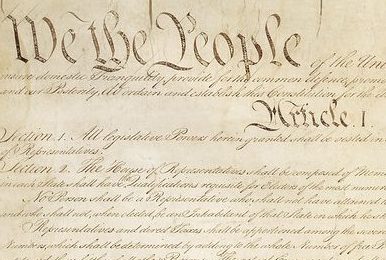 We the People of the Uni
insure domestic Tranquility, provide for the common defence, prom
and our Posterity, do ordain and establish this Constitution for the
Article. I.
Section. 1. All legislative Powers herein granted shall be vested in
of Representatives.
Section. 2. The House of Representatives shall be composed of Mem
in each State shall have Qualifications requisite for Electors of the most numer
No Person shall be a Representative who shall not have attained
and who shall not, when elected, be an Inhabitant of that State in which he
Representatives and direct Taxes shall be apportioned among the several
Numbers, which shall be determined by adding to the whole Number of free